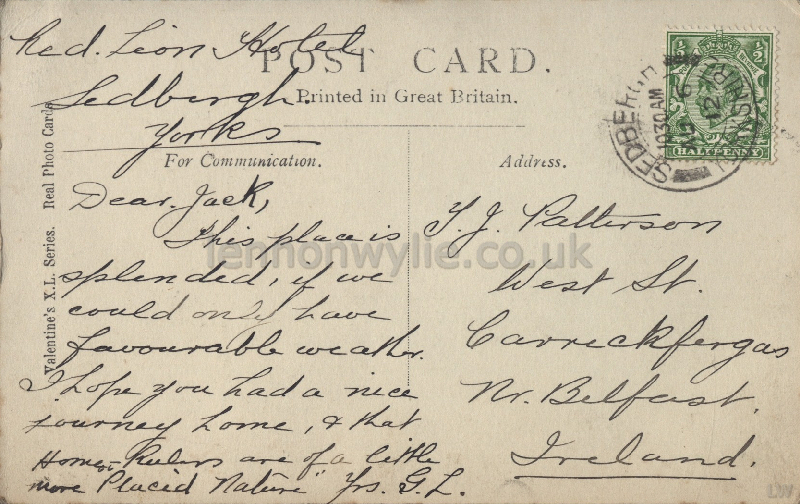 Red. Lion Hotel
Sedbergh.
Yorks
POST CARD.
Printed in Great Britain.
Valentine's X.L. Series. Real Photo Cards
For Communication.
Dear. Jack,
This place is
splended, if we
could only have
favourable weather.
I hope you had a nice
journey home, & that
Home-Rulers are of a little
more "Placid Nature" Yrs. G. L.
Address.
T. J. Patterson
West St.
Carreckfergas
Nr. Belfast.
Ireland.
½ ½
HALFPENNY
SEDBERGH
1030 AM
12
lennonwylie.co.uk
LW